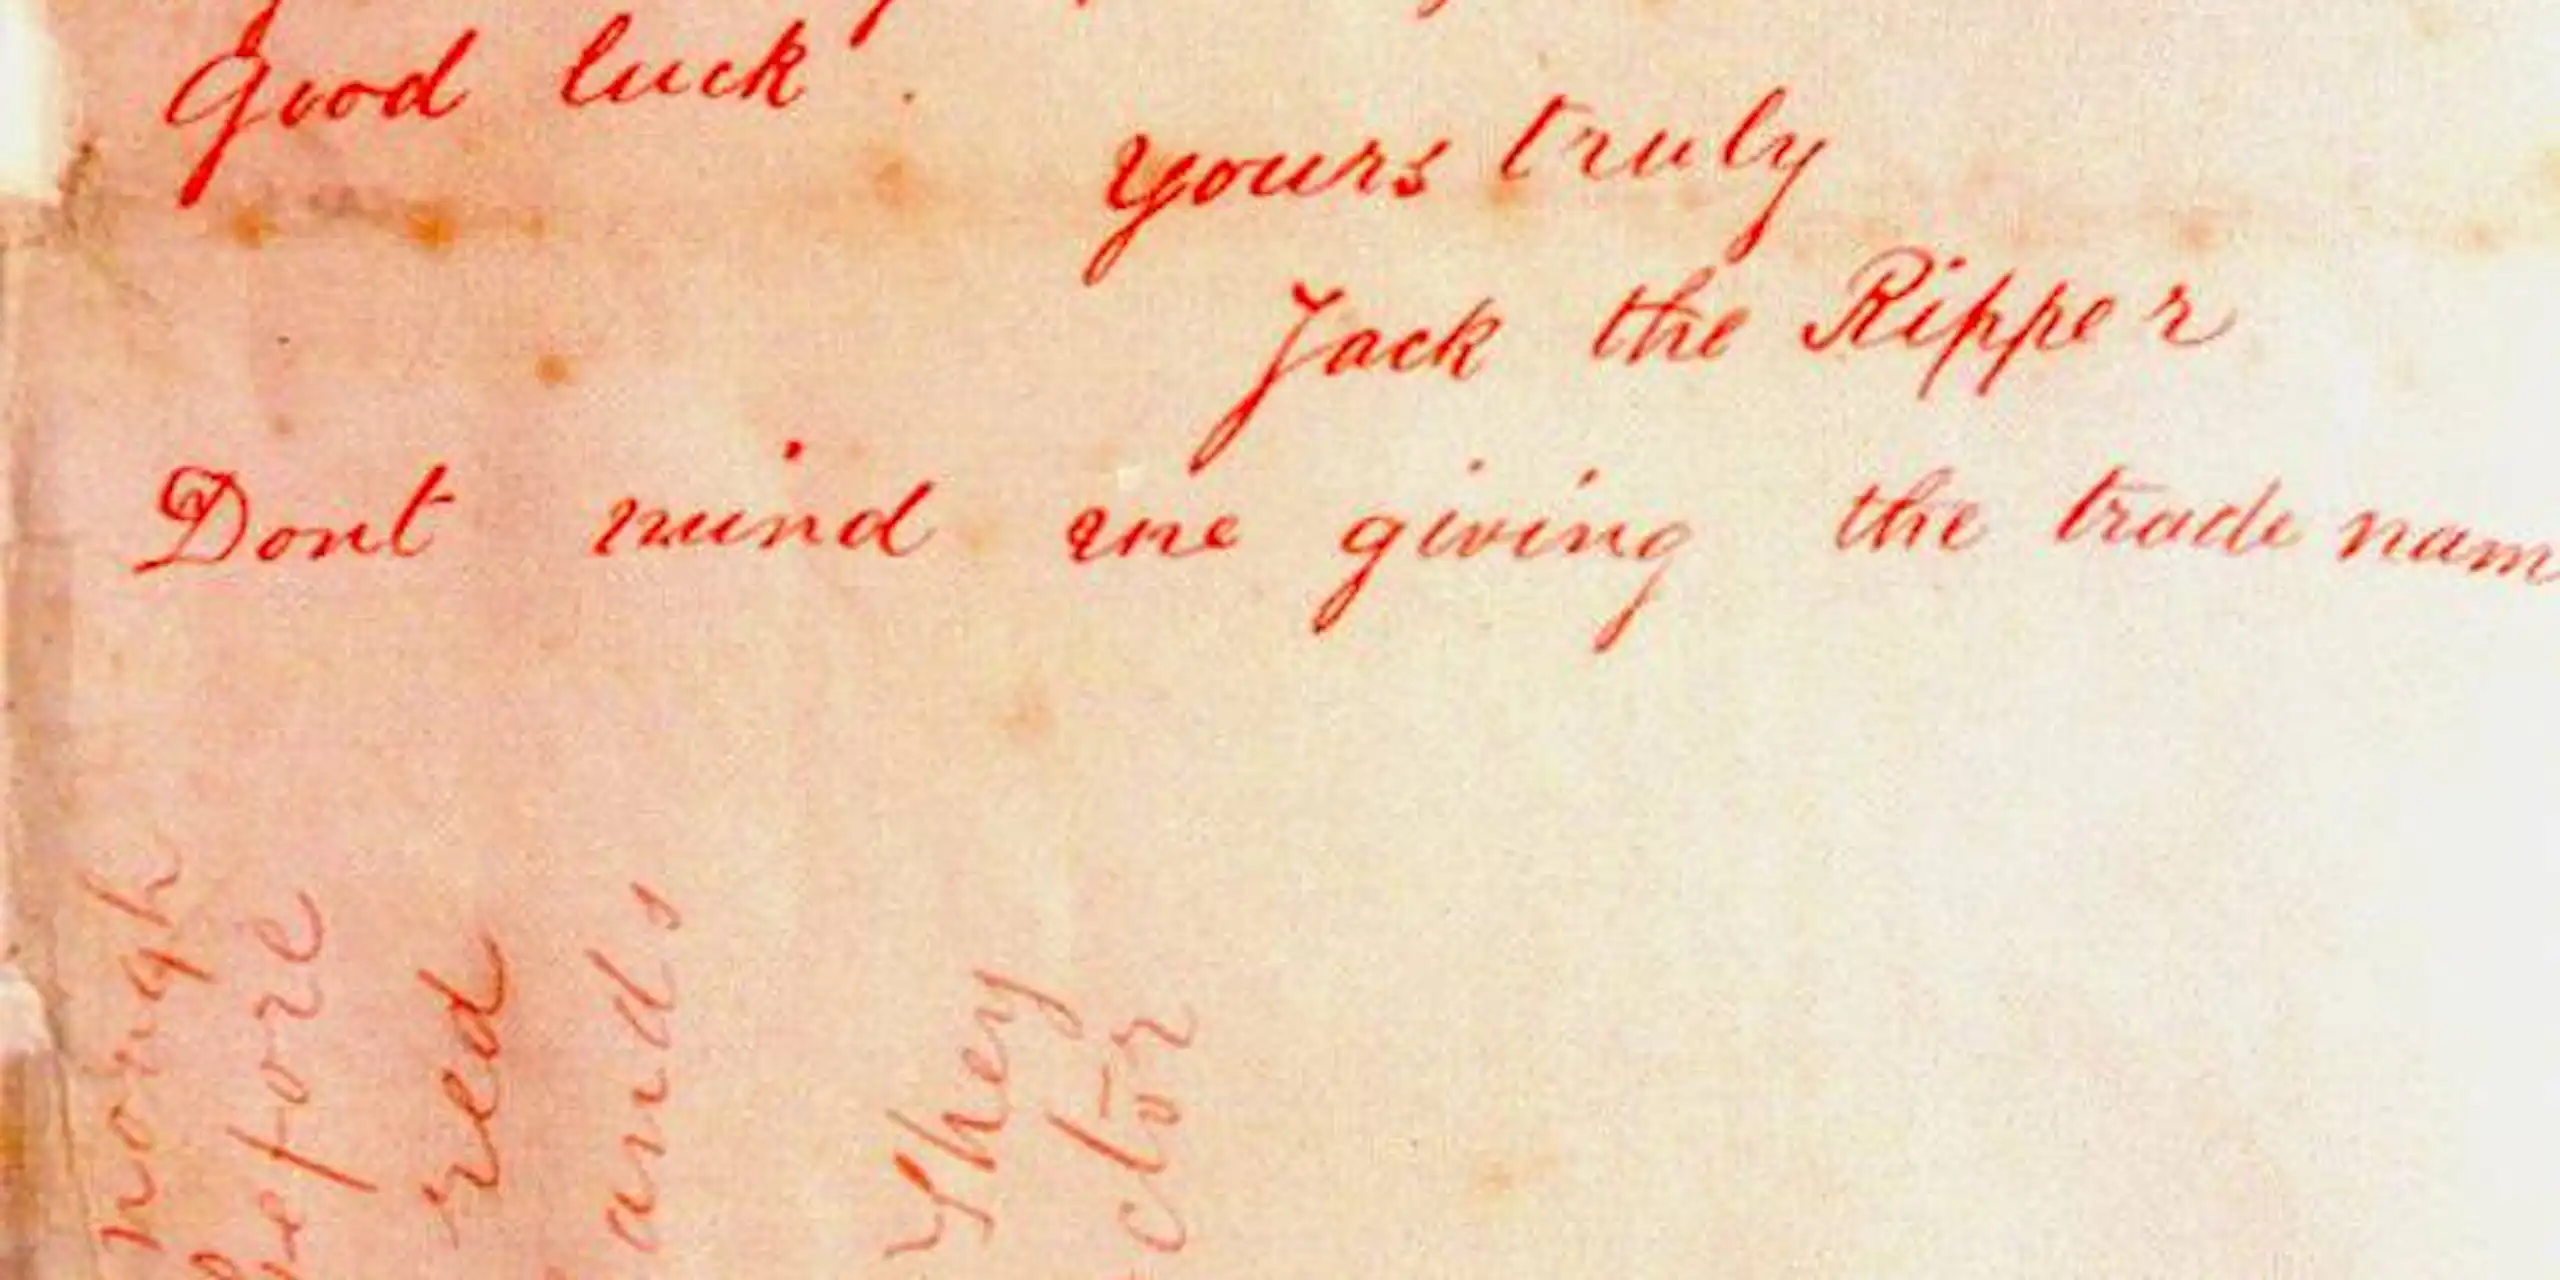 Good luck.
yours truly
Jack the Ripper
Dont mind me giving the trade nam
nough
before
red
ands
They
ctor